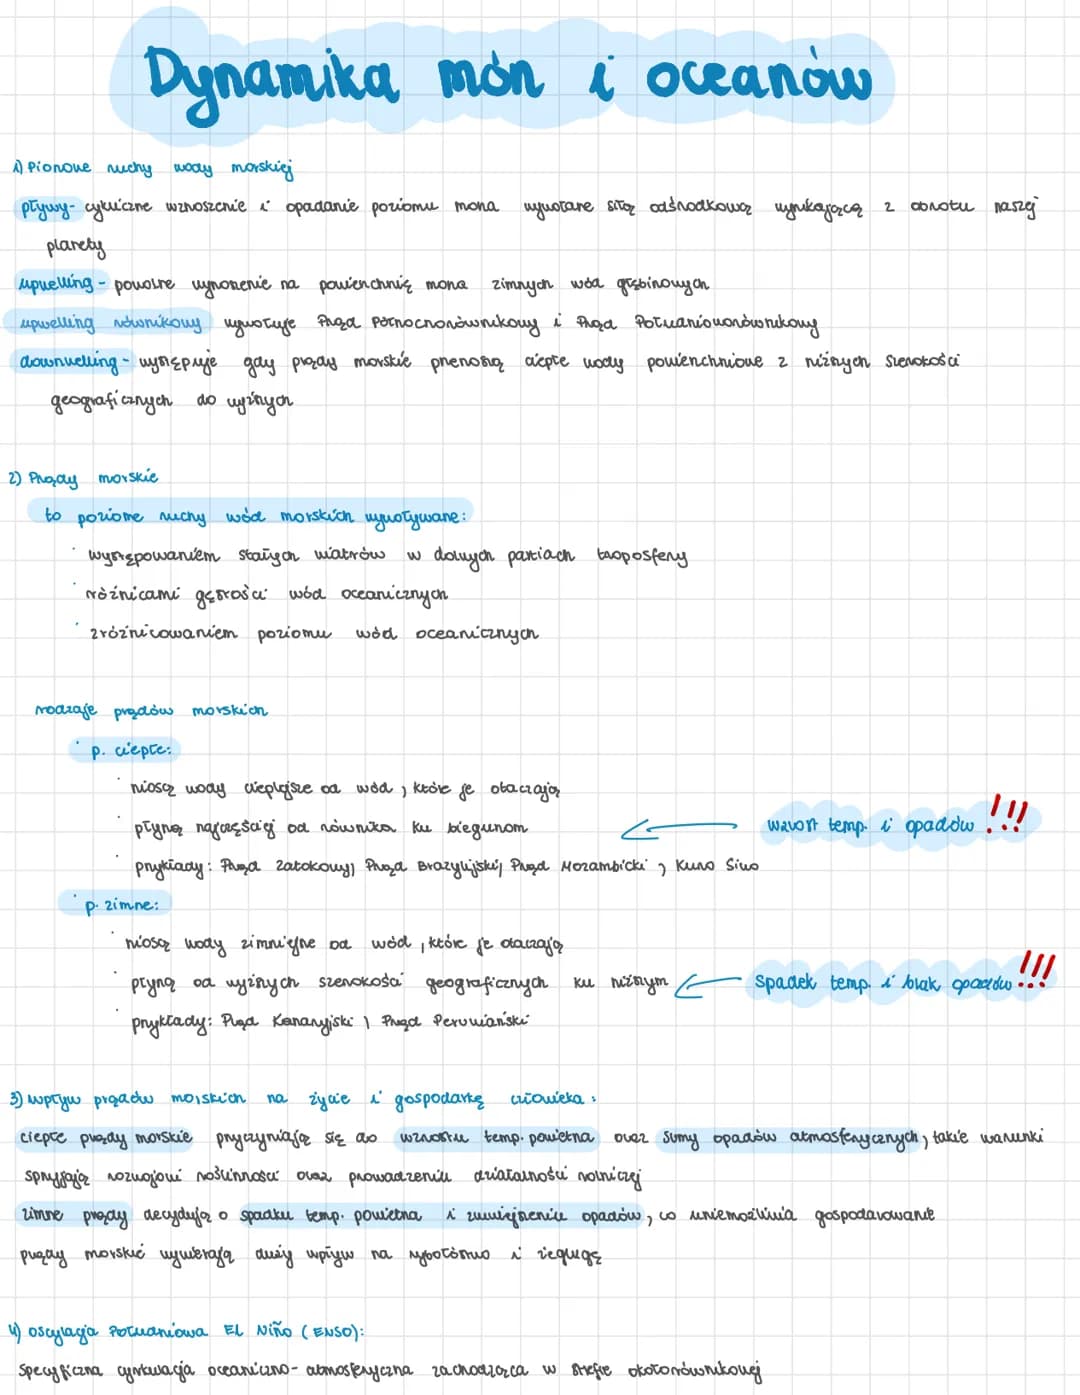 Dynamika mórz i oceanów
1) Pionowe ruchy wody morskiej
pływy- cykliczne wznoszenie i opadanie poziomu morza wywołane siłą odśrodkową wynikającą z obrotu naszej
planety
upwelling - powolne wynoszenie na powierzchnię morza zimnych wód głębinowych
upwelling równikowy wywołuje Prąd Północnorównikowy i Prąd Południoworównikowy
downwelling - występuje gdy prądy morskie przenoszą ciepłe wody powierzchniowe z niższych szerokości
geograficznych do wyższych
2) Prądy morskie
to poziome ruchy wód morskich wywoływane:
· występowaniem stałych wiatrów w dolnych partiach troposfery
· różnicami gęstości wód oceanicznych
· zróżnicowaniem poziomu wód oceanicznych
rodzaje prądów morskich
· p. ciepłe:
· niosą wody cieplejsze od wód, które je otaczają
· płyną najczęściej od równika ku biegunom ← wzrost temp. i opadów !!!
· przykłady: Prąd Zatokowy, Prąd Brazylijski, Prąd Mozambicki, Kuro Siwo
· p. zimne:
· niosą wody zimniejsze od wód, które je otaczają
· płyną od wyższych szerokości geograficznych ku niższym ← spadek temp. i brak opadów !!!
· przykłady: Prąd Kanaryjski, Prąd Peruwiański
3) wpływ prądów morskich na życie i gospodarkę człowieka:
ciepłe prądy morskie przyczyniają się do wzrostu temp. powietrza oraz sumy opadów atmosferycznych, takie warunki
sprzyjają rozwojowi roślinności oraz prowadzeniu działalności rolniczej
zimne prądy decydują o spadku temp. powietrza i zmniejszeniu opadów, co uniemożliwia gospodarowanie
prądy morskie wywierają duży wpływ na rybołóstwo i żeglugę
4) oscylacja Południowa El Niño (ENSO):
specyficzna cyrkulacja oceaniczno-atmosferyczna zachodząca w strefie okołorównikowej